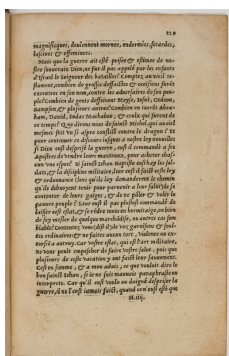 magnifiques, deuiennent mornes, endormies, fetardes,
lasches & effeminees.
Mais que la guerre ait esté prisee & estimee de nostre
souuerain Dieu, ne fut il pas appellé par les enfans
d'Israël le seigneur des batailles? Comptez, au vieil testament,
combien de grosses deffaictes & occisions furēt
executees en son nom, contre les aduersaires de son peuple?
Combien de geants deffirent Moyse, Iosué, Gedeon,
Sampson, & plusieurs autres? Combien en tuerēt Abraham,
Dauid, Iudas Machabee, & ceulx qui furent de
ce temps? Que dirons nous de sainct Michel, qui au ciel
mesmes feit vn si aspre conflict contre le dragon? Et
pour continuer ce discours iusques a nostre loy nouuelle:
si Dieu eust desprisé la guerre, eust il commandé a ses
Apostres de vendre leurs manteaux, pour acheter chascun
vne espee? Si sainct Iehan Baptiste eust hay les soldats,
& la discipline militaire, leur eust il faict ceste loy
& ordonnance (lors qu'ilz luy demanderent le chemin
qu'ilz debuoyent tenir pour paruenir a leur salut) de se
contenter de leurs gaiges, & de ne piller & voler le
pauure peuple? Leur eust il pas plustost commandé de
laisser cest estat, & se rēdre touts en hermitaige, ou bien
se mesler de quelque marchādise, ou autres cas semblables?
Contentez vous (dist il) de voz garnisons & souldes
ordinaires: & ne faictes aucun tort, violence ou extorsiō
a autruy. Car vostre estat, qui est l'art militaire,
ne vous peult empescher de faire vostre salut, puis que
plusieurs de ceste vacation y ont faict leur sauuement.
C'est en somme, & a mon aduis, ce que vouloit dire le
bon sainct Iehan, si ie ne suis mauuais paraphraste ou
interprete. Car s'il eust voulu ou daigné despriser la
guerre, il ne l'eust iamais faict, quand ores eust esté que
H. iiij.